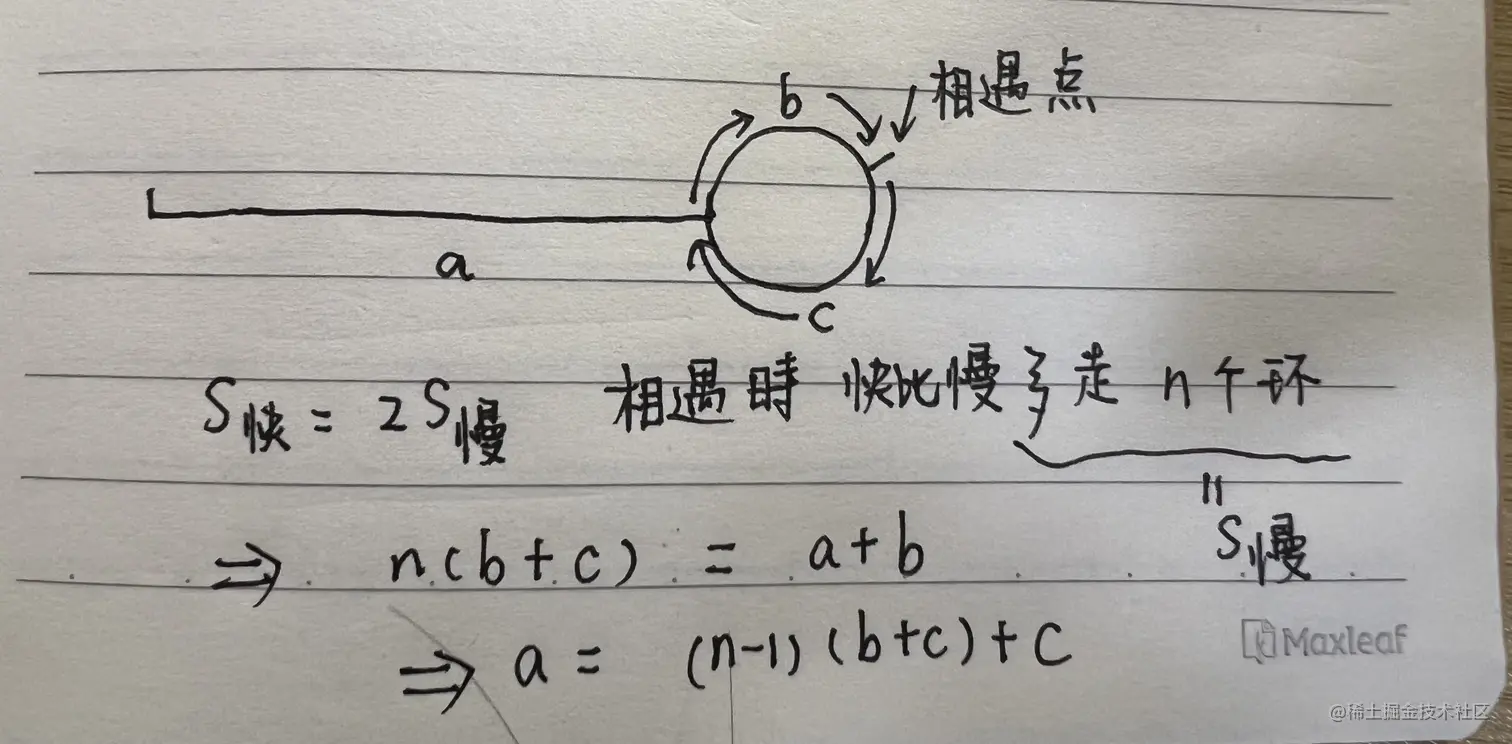 b
相遇点
a
c
S快 = 2S慢 相遇時 快比慢多走 n个环
=
S慢
⇒ n(b+c) = a+b
⇒ a = (n-1)(b+c)+c
Maxleaf
@稀土掘金技术社区